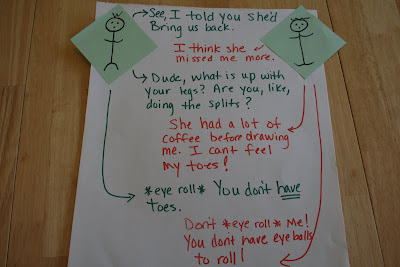 See, I told you she'd
Bring us back.
I think she
missed me more.
Dude, what is up with
your legs? Are you, like,
doing the splits?
She had a lot of
coffee before drawing
me. I cant feel
my toes!
*eye roll* You don't have
toes.
Don't *eye roll* Me!
You dont have eyeballs
to roll!